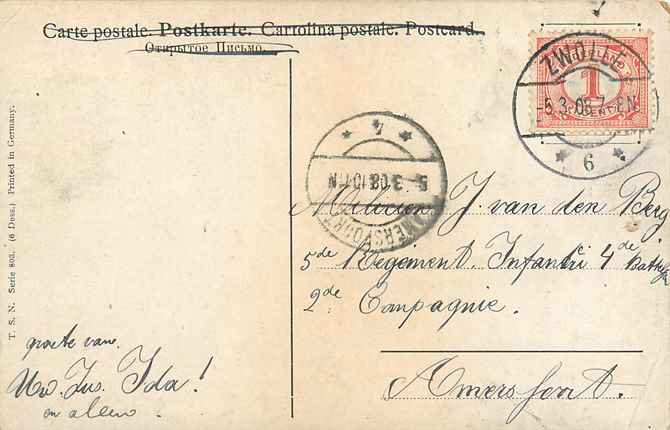 Carte postale. Postkarte. Cartolina postale. Postcard.
Открытое Письмо.
ZWOLLE
1
5.3.08.7-EN
6
4
5 3.08.10-11N
AMERSFOORT
T. S. N. Serie 803. (6 Dess.) Printed in Germany.
Milicien J. van den Berg
5de Regiment. Infantri 4de
2de Compagnie.
Amersfoort.
groete van
Uw Zus. Ida!
en allen.